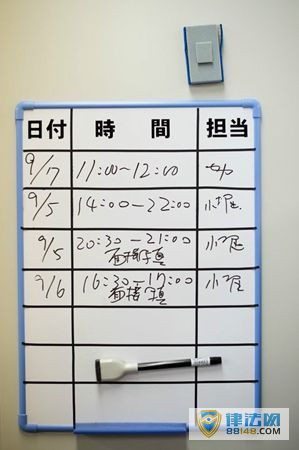 日付 時間 担当
9/7 11:00~12:00
9/5 14:00~22:00 小尾
9/5 20:30~21:00 小尾
面接写真
9/6 16:30~17:00 小尾
面接写真
律法网
88148.com